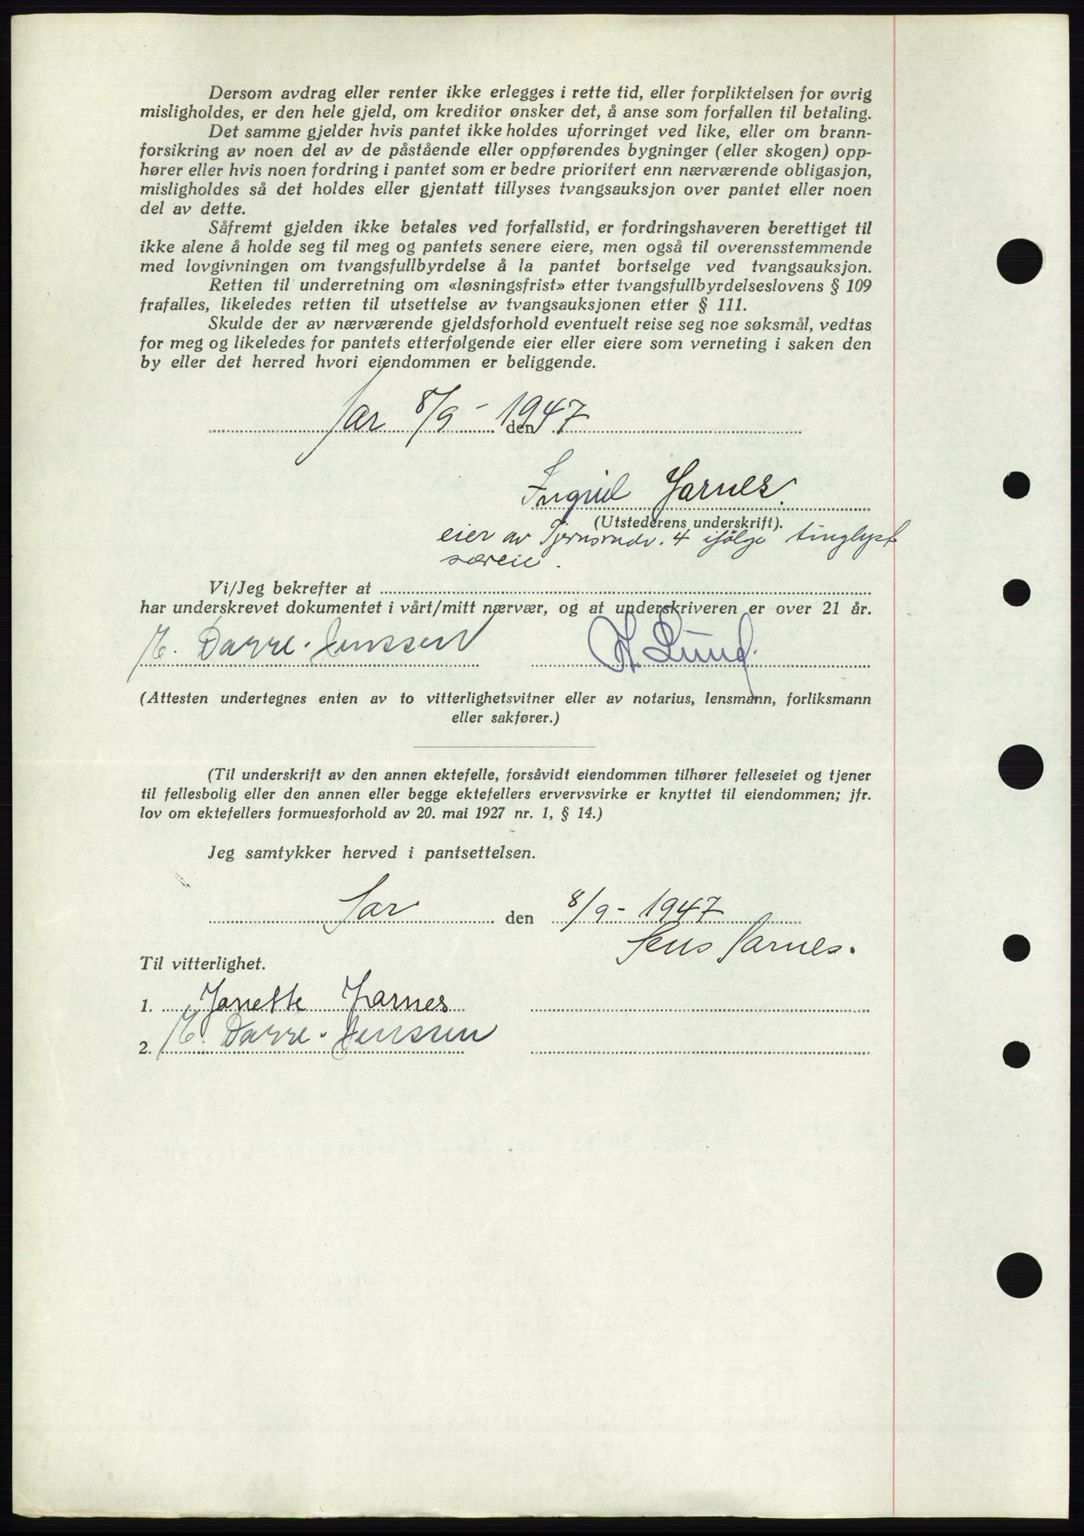 Dersom avdrag eller renter ikke erlegges i rette tid, eller forpliktelsen for øvrig
misligholdes, er den hele gjeld, om kreditor ønsker det, å anse som forfallen til betaling.
Det samme gjelder hvis pantet ikke holdes uforringet ved like, eller om brann-
forsikring av noen del av de påstående eller oppførendes bygninger (eller skogen) opp-
hører eller hvis noen fordring i pantet som er bedre prioritert enn nærværende obligasjon,
misligholdes så det holdes eller gjentatt tillyses tvangsauksjon over pantet eller noen
del av dette.
Såfremt gjelden ikke betales ved forfallstid, er fordringshaveren berettiget til
ikke alene å holde seg til meg og pantets senere eiere, men også til overensstemmende
med lovgivningen om tvangsfullbyrdelse å la pantet bortselge ved tvangsauksjon.
Retten til underretning om «løsningsfrist» etter tvangsfullbyrdelseslovens § 109
frafalles, likeledes retten til utsettelse av tvangsauksjonen etter § 111.
Skulde der av nærværende gjeldsforhold eventuelt reise seg noe søksmål, vedtas
for meg og likeledes for pantets etterfølgende eier eller eiere som verneting i saken den
by eller det herred hvori eiendommen er beliggende.
Jar 8/9 - den 1947
Ingrid Jarnes.
(Utstederens underskrift).
eier av Tjernsrudv. 4 ifølge tinglyst
særeie.
Vi/Jeg bekrefter at
har underskrevet dokumentet i vårt/mitt nærvær, og at underskriveren er over 21 år.
E. Darre-Jenssen H. Lund.
(Attesten undertegnes enten av to vitterlighetsvitner eller av notarius, lensmann, forliksmann
eller sakfører.)
(Til underskrift av den annen ektefelle, forsåvidt eiendommen tilhører felleseiet og tjener
til fellesbolig eller den annen eller begge ektefellers ervervsvirke er knyttet til eiendommen; jfr.
lov om ektefellers formuesforhold av 20. mai 1927 nr. 1, § 14.)
Jeg samtykker herved i pantsettelsen.
Jar den 8/9 - 1947
Jens Jarnes.
Til vitterlighet.
1. Janette Jarnes
2. E. Darre-Jenssen